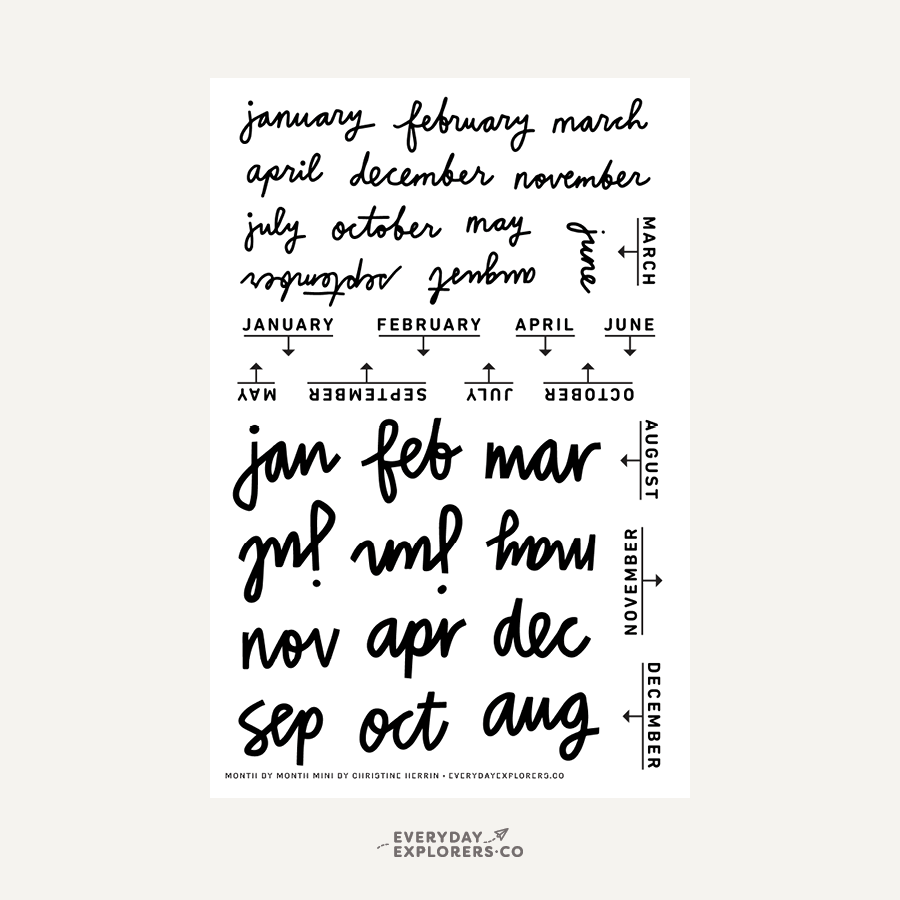 january february march
april december november
july october may june
september august
MARCH
JANUARY FEBRUARY APRIL JUNE
MAY SEPTEMBER JULY OCTOBER
jan feb mar
AUGUST
jul jun may
NOVEMBER
nov apr dec
DECEMBER
sep oct aug
MONTH BY MONTH MINI BY CHRISTINE HERRIN • EVERYDAYEXPLORERS.CO
EVERYDAY
EXPLORERS·CO